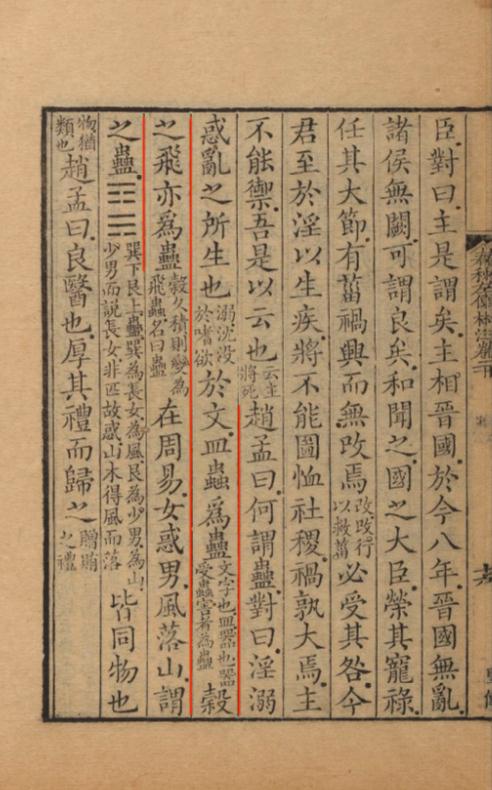 臣對曰主是謂矣主相晉國於今八年晉國無亂
諸侯無闕可謂良矣和聞之國之大臣榮其寵祿
任其大節有菑禍興而無攺焉攺攺行以救菑必受其咎今
君至於淫以生疾將不能圖恤社稷禍孰大焉主
不能禦吾是以云也云主將死趙孟曰何謂蠱對曰淫溺
惑亂之所生也溺沈没於嗜欲於文皿蟲為蠱文字也皿器也器受蟲害者為蠱榖
之飛亦為蠱榖久積則變為飛蟲名曰蠱在周易女惑男風落山謂
之蠱䷑巽下艮上蠱巽為長女為風艮為少男為山少男而說長女非匹故惑山木得風而落皆同物也
物猶類也趙孟曰良醫也厚其禮而歸之贈賄之禮